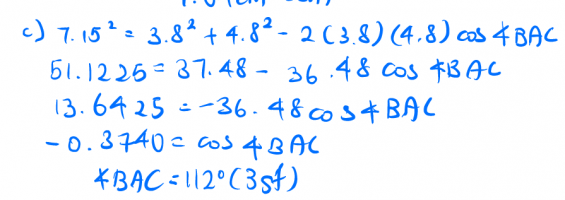 c) 7.15² = 3.8² + 4.8² - 2(3.8)(4.8) cos ∡BAC
51.1225 = 37.48 - 36.48 cos ∡BAC
13.6425 = -36.48 cos ∡BAC
-0.3740 = cos ∡BAC
∡BAC = 112° (3sf)